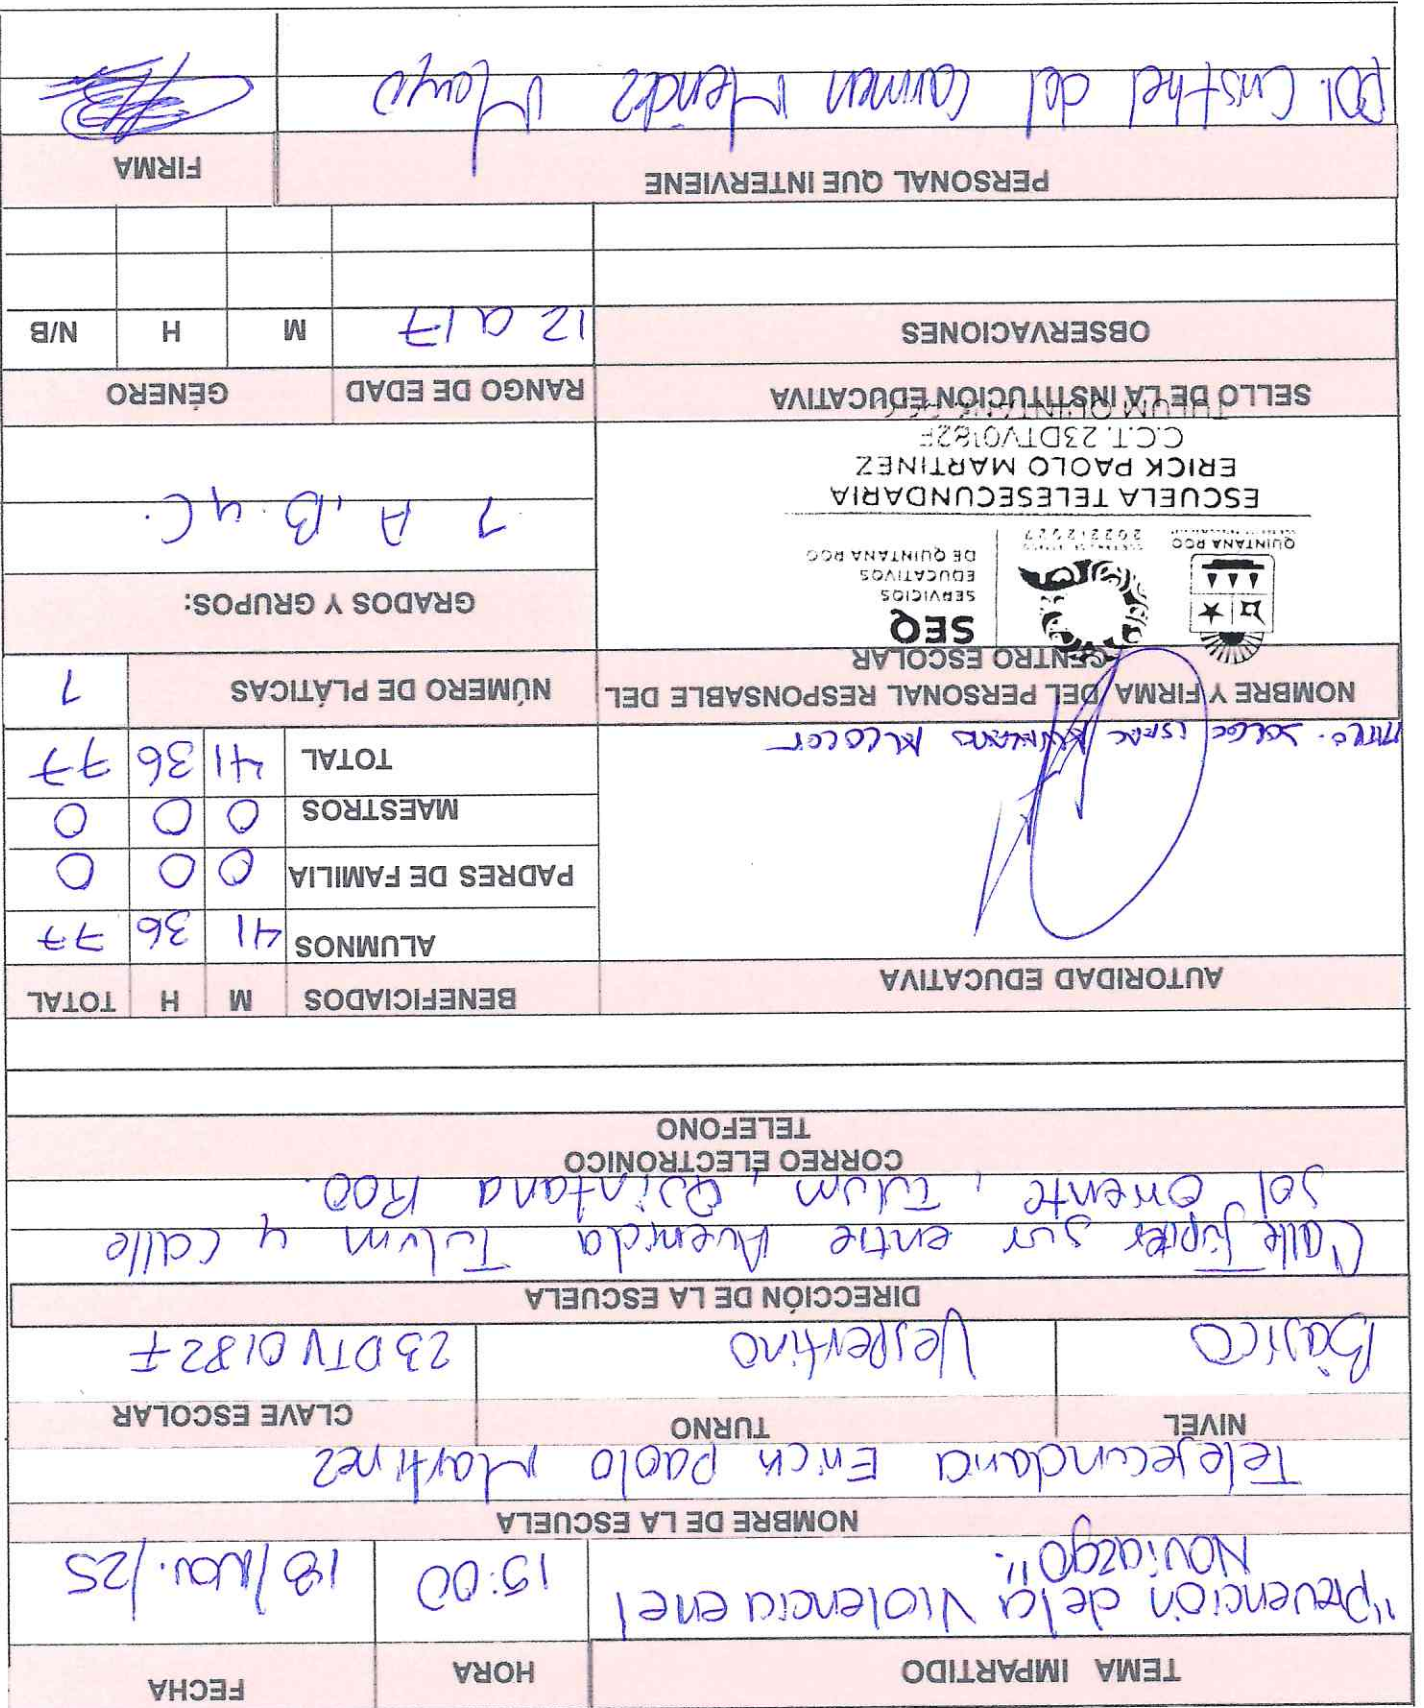 TEMA IMPARTIDO HORA FECHA
"Prevención de la Violencia en el 15:00 18/Nov./25
Noviazgo".
NOMBRE DE LA ESCUELA
Telesecundaria Erick Paolo Martinez
NIVEL TURNO CLAVE ESCOLAR
Básico Vespertino 23DTV0182F
DIRECCIÓN DE LA ESCUELA
Calle Jupiter sur entre Avenida Tulum y calle
Sol Oriente, Tulum, Quintana Roo.
CORREO ELECTRONICO
TELEFONO
AUTORIDAD EDUCATIVA BENEFICIADOS M H TOTAL
ALUMNOS 41 36 77
PADRES DE FAMILIA 0 0 0
MAESTROS 0 0 0
TOTAL 41 36 77
NOMBRE Y FIRMA DEL PERSONAL RESPONSABLE DEL
CENTRO ESCOLAR
NÚMERO DE PLÁTICAS 1
GRADOS Y GRUPOS:
1 A, B y C.
QUINTANA ROO
2022-2027
SEQ
SERVICIOS
EDUCATIVOS
DE QUINTANA ROO
ESCUELA TELESECUNDARIA
ERICK PAOLO MARTINEZ
C.C.T. 23DTV0182F
TULUM QUINTANA ROO
SELLO DE LA INSTITUCIÓN EDUCATIVA RANGO DE EDAD GÉNERO
OBSERVACIONES 12 a 17 M H N/B
PERSONAL QUE INTERVIENE FIRMA
Pol. Cristhel del Carmen Mendez Mayo